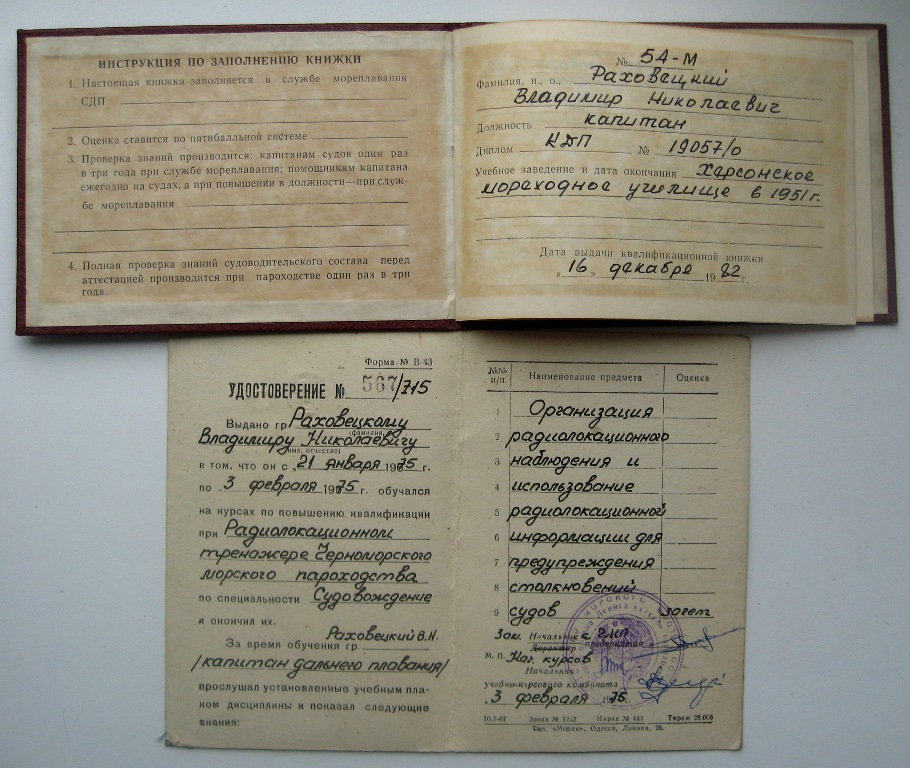 ИНСТРУКЦИЯ ПО ЗАПОЛНЕНИЮ КНИЖКИ
1. Настоящая книжка заполняется в службе мореплавания
СДП
2. Оценка ставится по пятибалльной системе
3. Проверка знаний производится: капитанам судов один раз
в три года при службе мореплавания; помощникам капитана
ежегодно на судах, а при повышении в должности—при служ-
бе мореплавания
4. Полная проверка знаний судоводительского состава перед
аттестацией производится при пароходстве один раз в три
года.
№ 54-М
Фамилия, и., о., Раховецкий
Владимир Николаевич
Должность капитан
Диплом КДП № 19057/о
Учебное заведение и дата окончания Херсонское
мореходное училище в 1951 г.
Дата выдачи квалификационной книжки
„16„ декабря 1982 г.
Форма № В-43
УДОСТОВЕРЕНИЕ № 567/715
Выдано гр Раховецкому
(фамилия,
Владимиру Николаевичу
имя, отчество)
в том, что он с „21 января 1975 г.
по „3 февраля 1975 г. обучался
на курсах по повышению квалификации
при Радиолокационном
тренажере Черноморского
морского пароходства
по специальности Судовождение
и окончил их.
За время обучения гр Раховецкий В.Н.
/капитан дальнего плавания/
прослушал установленные учебным пла-
ном дисциплины и показал следующие
знания:
№№ п/п Наименование предмета Оценка
1 Организация
2 радиолокационного
3 наблюдения и
4 использование
5 радиолокационной
6 информации для
7 предупреждения
8 столкновений
9 судов зачет
Зам. Начальник
Директор предприятия
М. П. Нач. курсов
Начальник
учебно-курсового комбината
„3 февраля 1975.
10.7-67 Заказ № 1242 Наряд № 443 Тираж 28.000
Тип. «Моряк», Одесса, Ленина, 26.